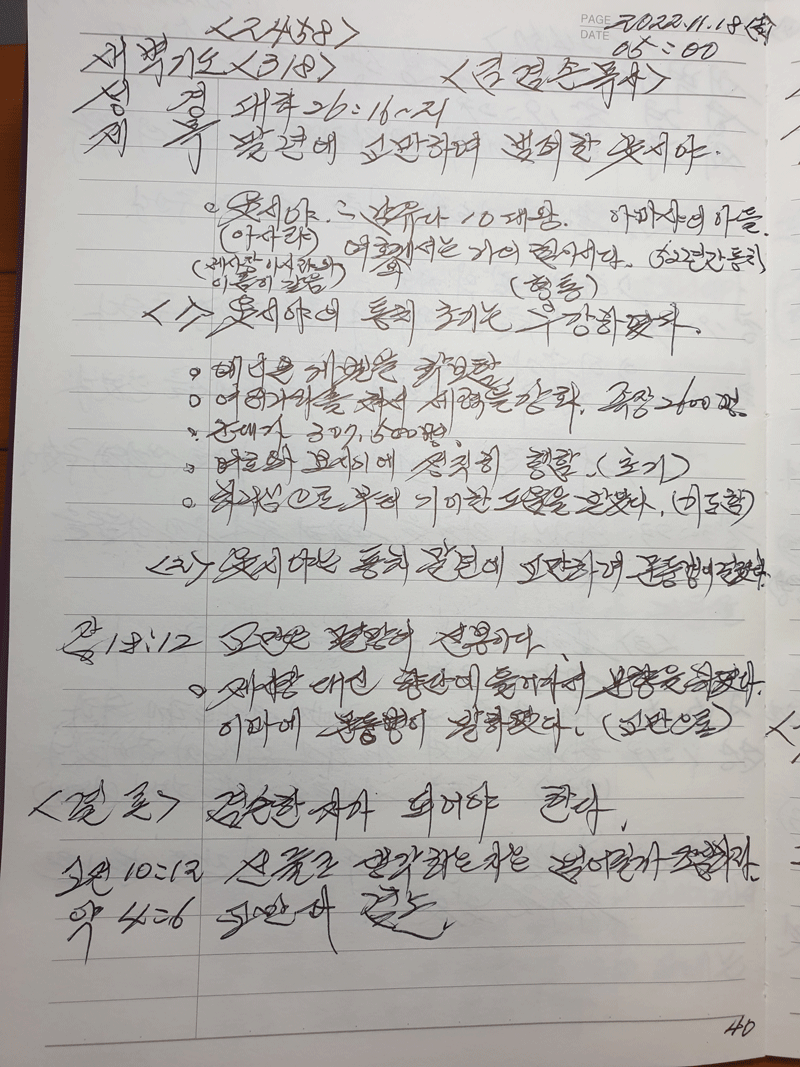 <2458>
PAGE 2022.11.18 (金)
DATE 05:00
새벽기도 <318> <김겸손 목사>
성경 대하 26:16~
제목 말년에 교만하여 범죄한 웃시야.
○ 웃시야. 남유다 10대왕. 아마샤의 아들.
(아사랴) 여호와께서는 나의 힘이시다. (52년간통치)
(제사장 아사랴와 이름이 같음) (형통)
<1> 웃시야의 통치 초기는 우강하였다.
○ 세력을 강화. 족장 2600명.
○ 군대가 307,500명.
○ 여호와 보시기에 정직히 행함. (초기)
○ 기이한 도움을 받았다. (기도함)
<2> 웃시야는 통치 말년에 교만하여 문둥병이 걸렸다.
잠 18:12 교만은 멸망의 선봉이다.
○ 제사장 대신 향단에 들어가서 분향을 하였다.
이마에 문둥병이 발하였다. (교만으로)
<결론> 겸손한 자가 되어야 한다.
고전 10:12 선 줄로 생각하는 자는 넘어질까 조심하라.
약 4:6 교만과 겸손.
40